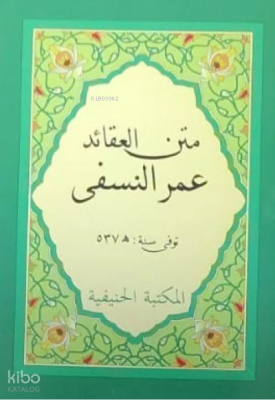 متن العقائد
عمر النسفى
توفى سنة: ٥٣٧ ه
المكتبة الحنيفية
kibo
KATALOG